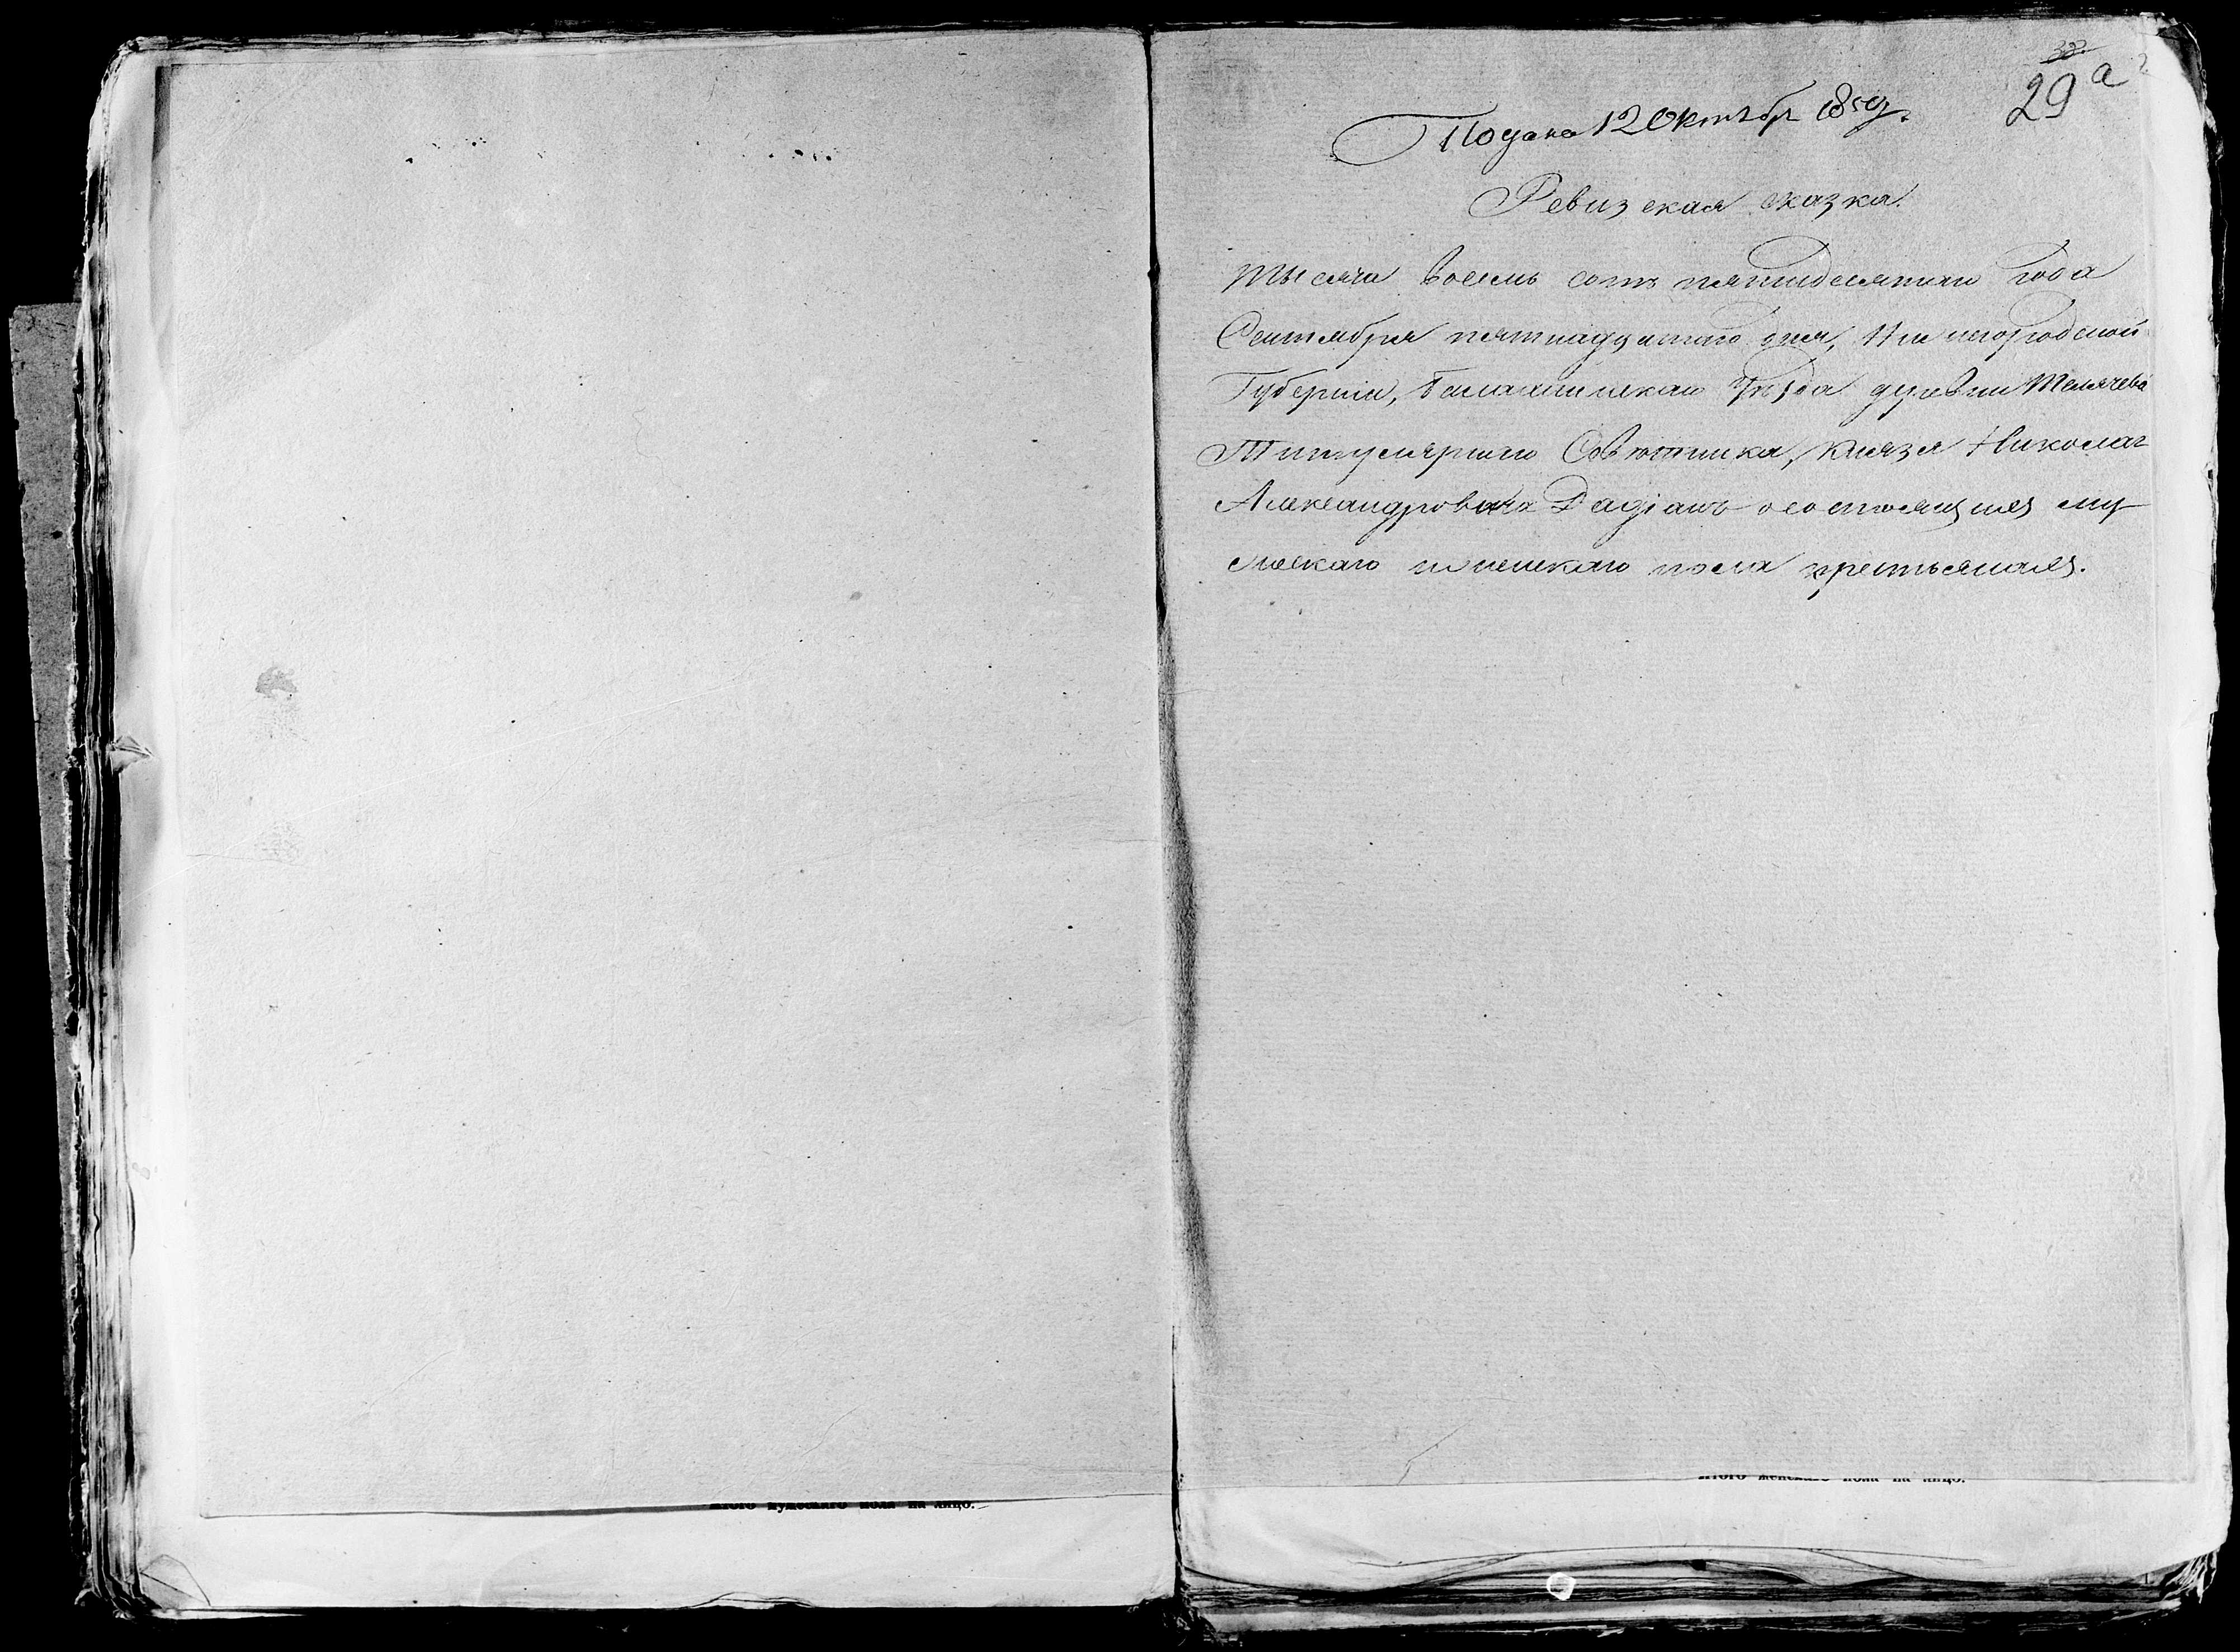 29 а
Подана 12 Октябр 1850 г.
Ревизская сказка.
Тысяча восемь сотъ пятидесятаго года
Сентября пятнадцатаго дня, Нижегородской
Губерніи, Балахнинскаго Уѣзда деревни Телячева
Титулярнаго Совѣтника, Князя Николая
Александровича Дадіанъ о состоящихъ му
жескаго и женскаго пола крестьянахъ.
Итого мужескаго пола на лицо.
Итого женскаго пола на лицо.